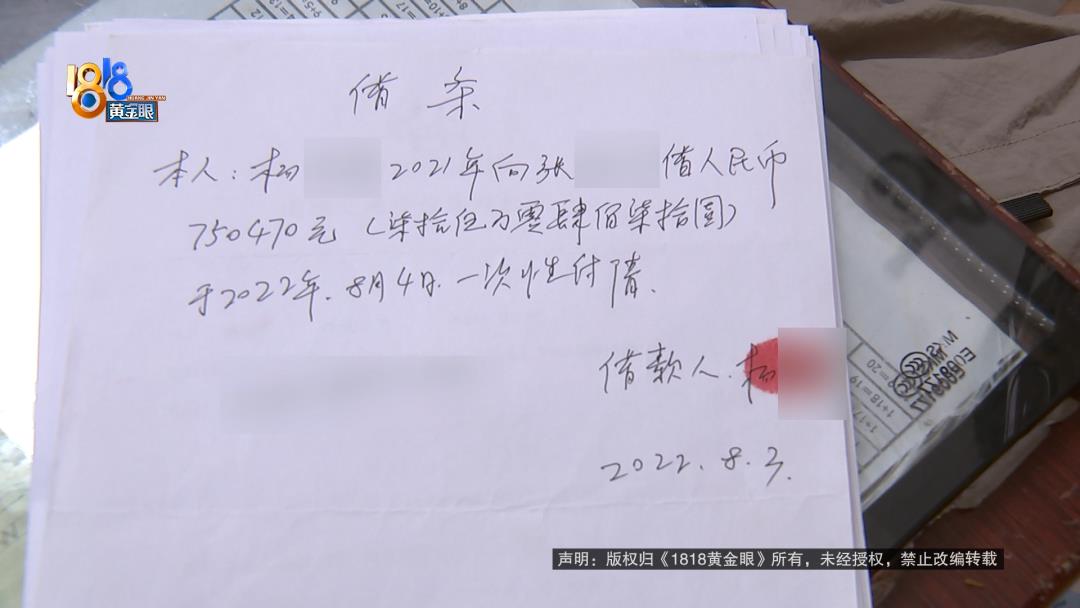 1818
HUANG JIN YAN
黄金眼
借条
本人:杨 2021年向张 借人民币
750470元(柒拾伍万零肆佰柒拾圆)
于2022年.8月4日.一次性付清.
借款人.杨
2022.8.3.
声明:版权归《1818黄金眼》所有,未经授权,禁止改编转载